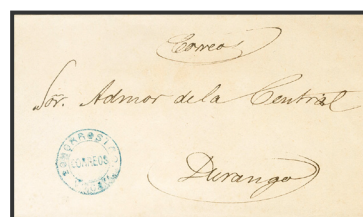 Correo
Sõr. Admor de la Central
Durango
CORREOS